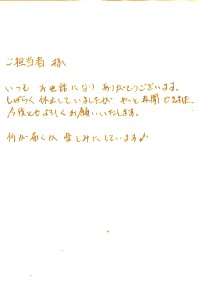 ご担当者 様
いつも お世話になり ありがとうございます。
しばらく 休止していましたが やっと 再開できました。
今後ともよろしくお願いいたします。
何が届くか 楽しみにしています♪